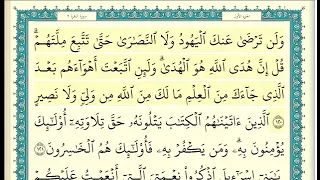 وَلَن تَرْضَىٰ عَنكَ ٱلْيَهُودُ وَلَا ٱلنَّصَٰرَىٰ حَتَّىٰ تَتَّبِعَ مِلَّتَهُمْ ۗ
قُلْ إِنَّ هُدَى ٱللَّهِ هُوَ ٱلْهُدَىٰ ۗ وَلَئِنِ ٱتَّبَعْتَ أَهْوَآءَهُم بَعْدَ
ٱلَّذِى جَآءَكَ مِنَ ٱلْعِلْمِ مَا لَكَ مِنَ ٱللَّهِ مِن وَلِىٍّ وَلَا نَصِيرٍ
١٢٠ ٱلَّذِينَ ءَاتَيْنَٰهُمُ ٱلْكِتَٰبَ يَتْلُونَهُۥ حَقَّ تِلَاوَتِهِۦٓ أُو۟لَٰٓئِكَ
يُؤْمِنُونَ بِهِۦ ۗ وَمَن يَكْفُرْ بِهِۦ فَأُو۟لَٰٓئِكَ هُمُ ٱلْخَٰسِرُونَ ١٢١
يَٰبَنِىٓ إِسْرَٰٓءِيلَ ٱذْكُرُوا۟ نِعْمَتِىَ ٱلَّتِىٓ أَنْعَمْتُ عَلَيْكُمْ